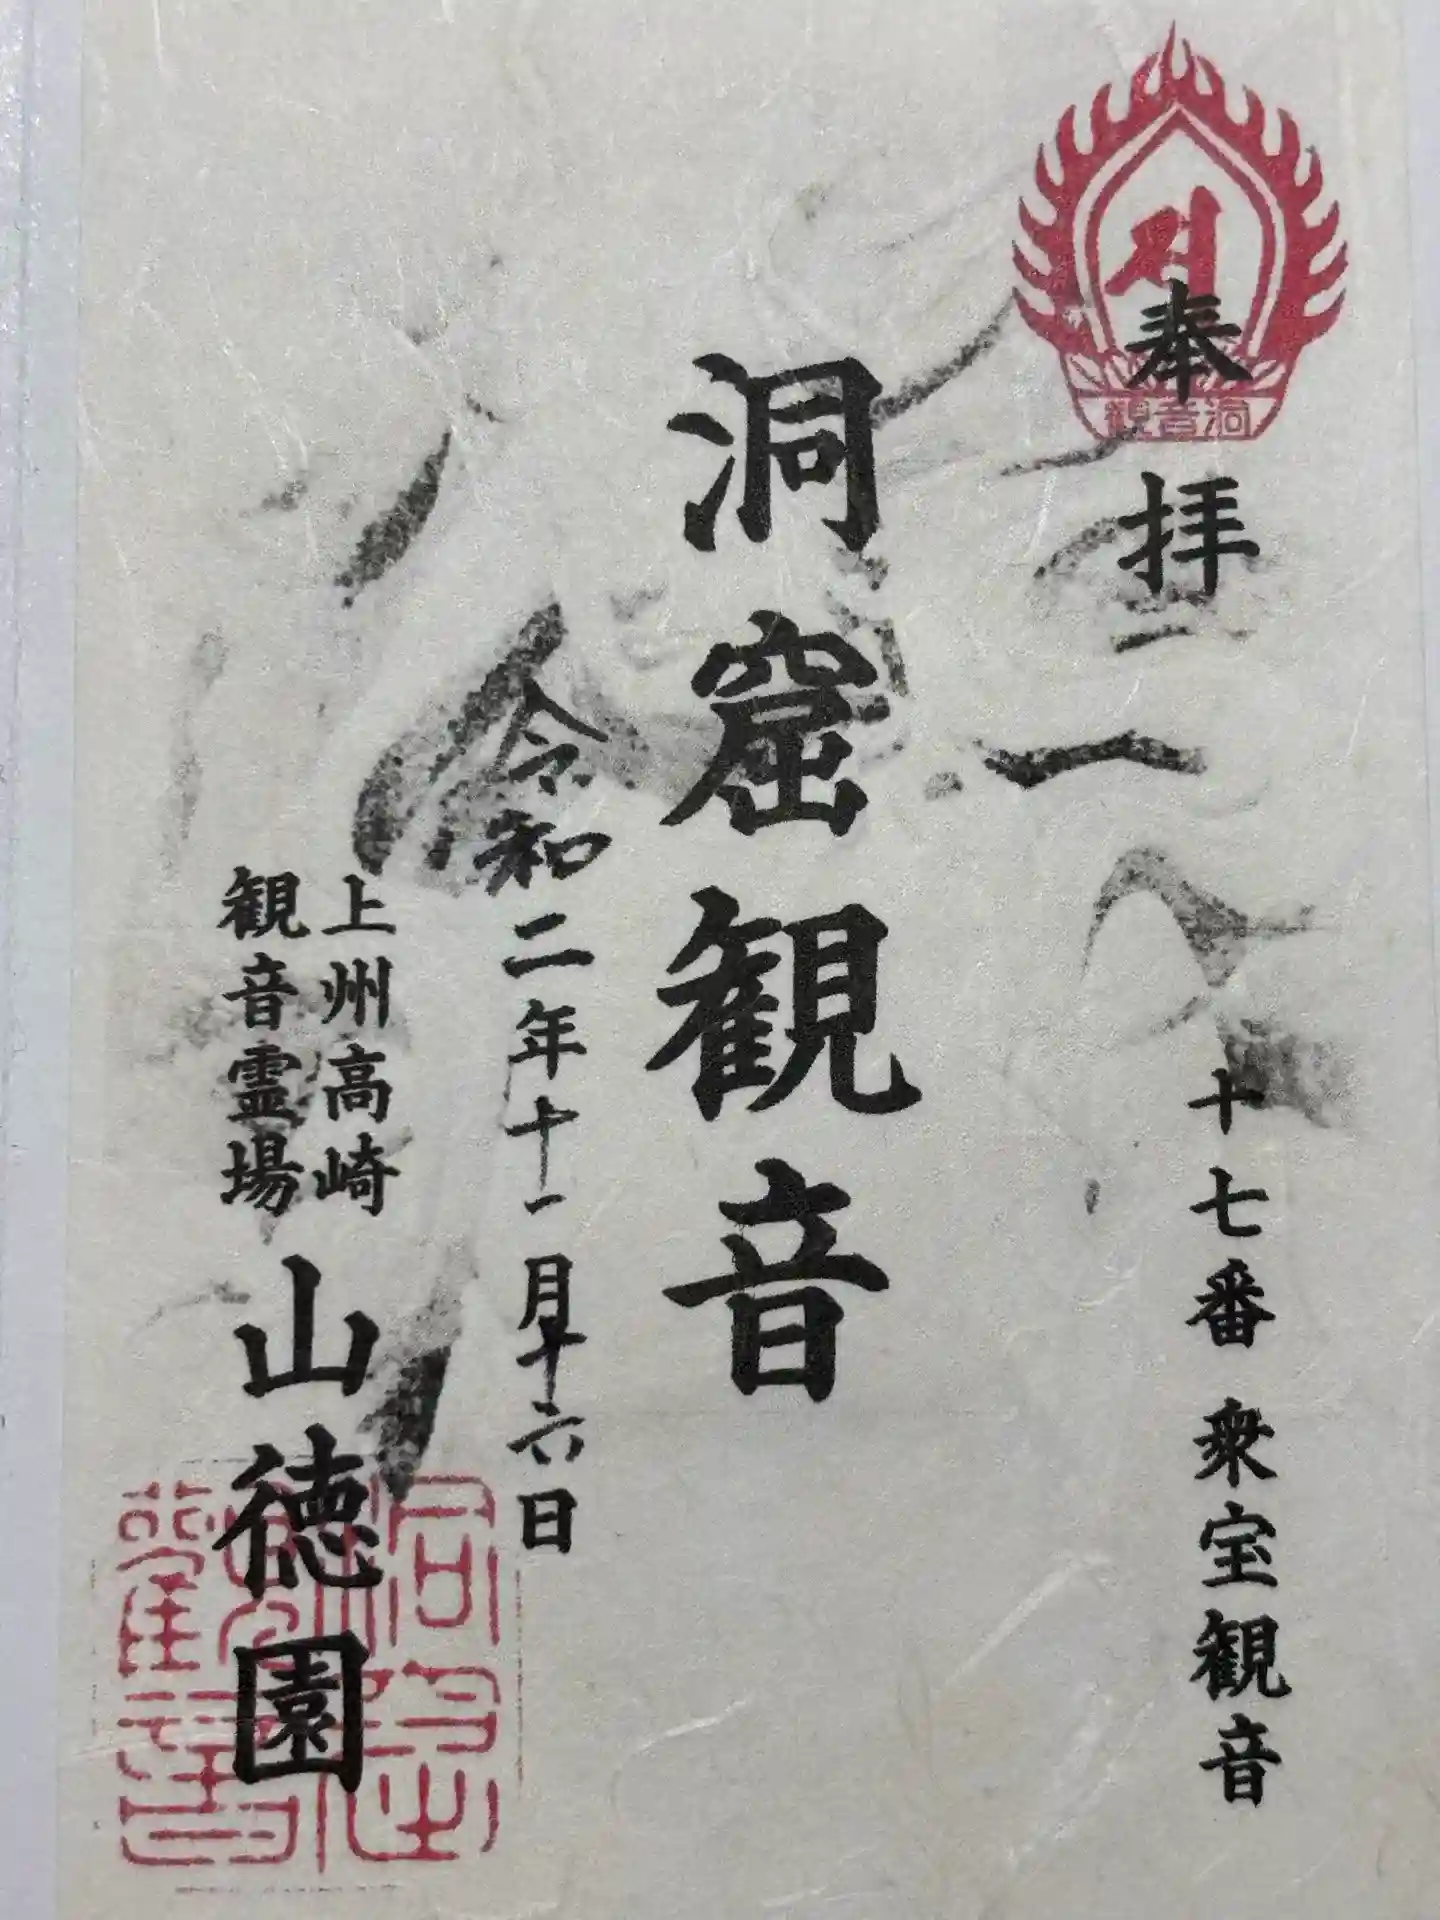 奉拝
十七番 衆宝観音
洞窟観音
令和二年十一月十六日
上州高崎
観音霊場
山徳園
観音洞
洞窟観音